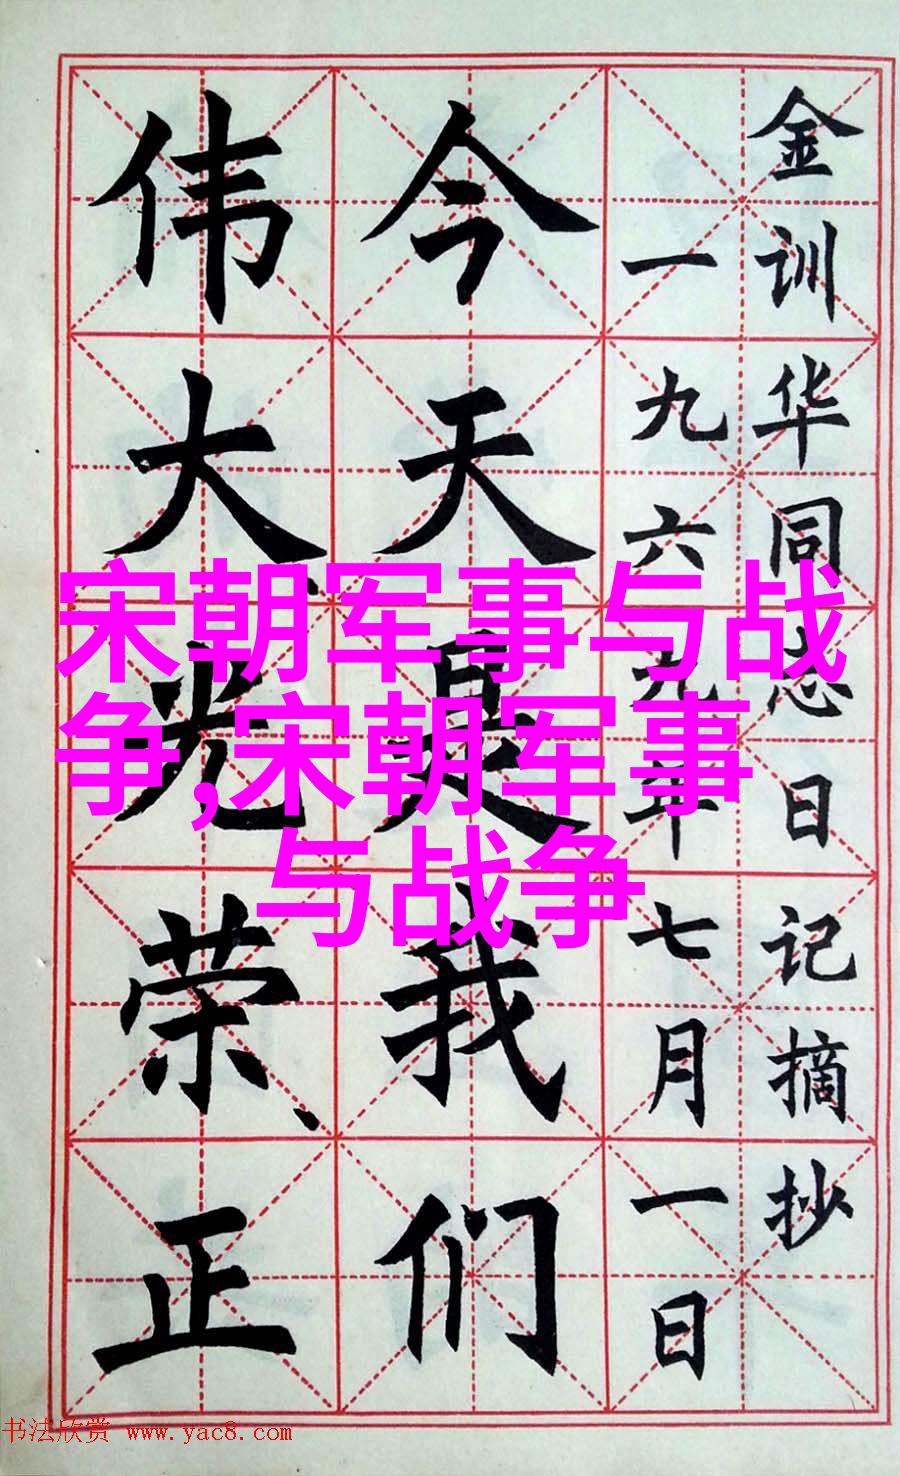 金训华同志日记摘抄
一九六九年七月一日
今天是我们
伟大、光荣、正
宋朝军事与战
争,宋朝军事
与战争
书法欣赏 www.yac8.com